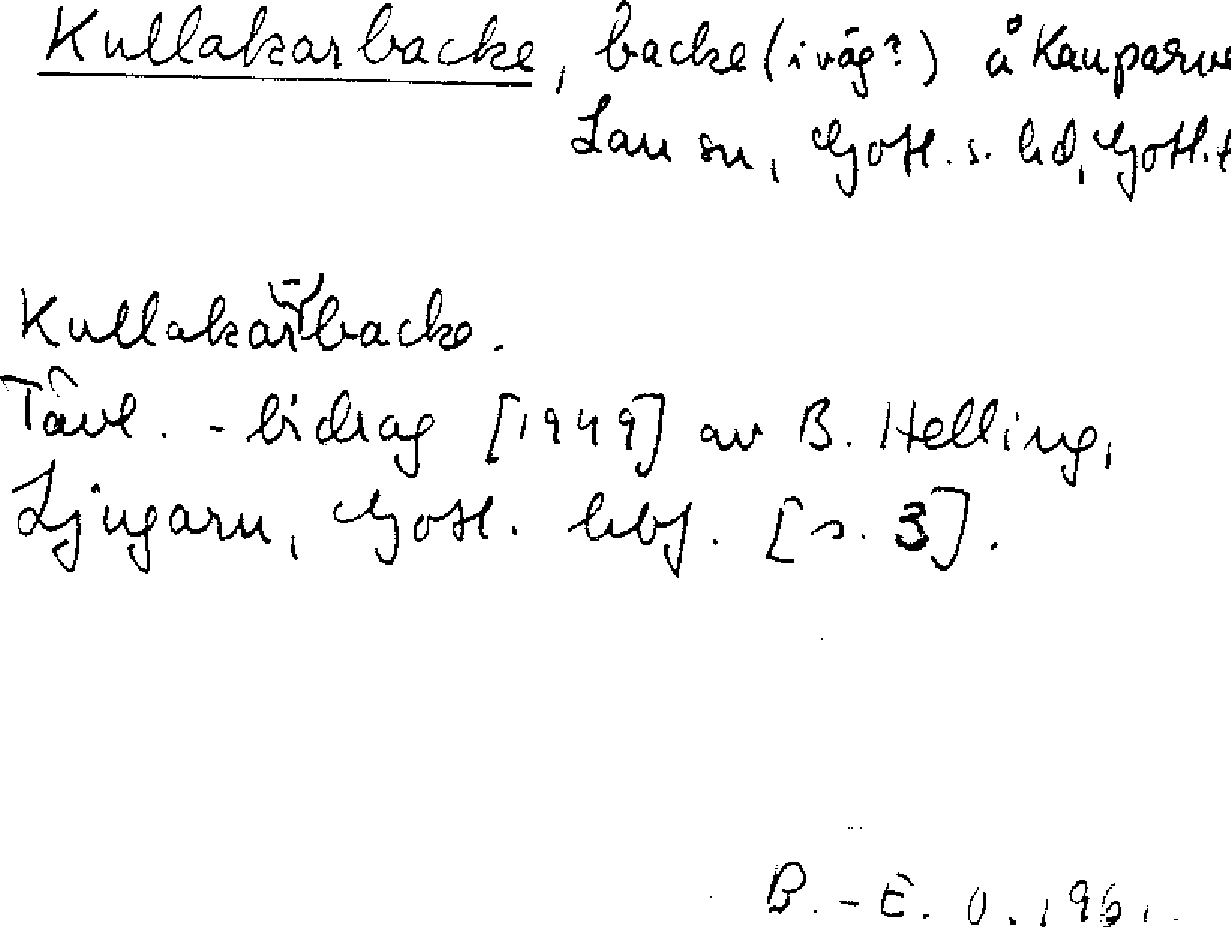 Kullakarbacke, backe (i väg?) å Kauparve
Lau sn, Gotl. s. hd, Gotl.
Kullakar(-)backe.
Tävl. - bidrag [1949] av B. Helling,
Ljugarn, Gotl. hbf. [s. 3].
B.-E. O. 1961.